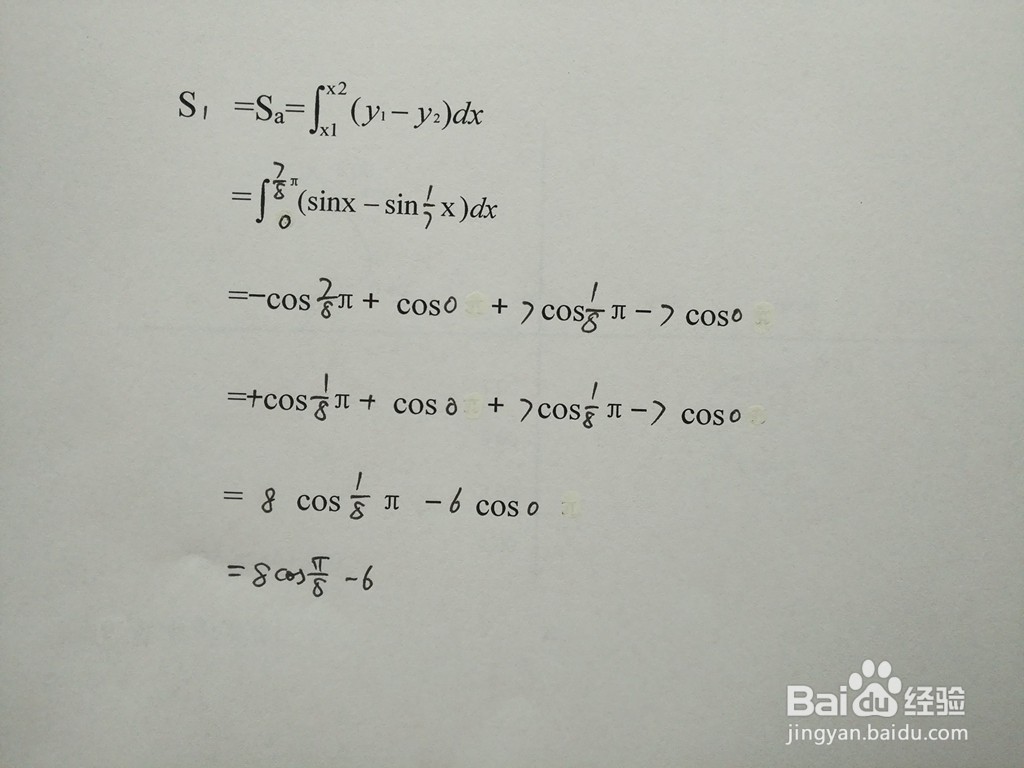 S1 =Sa=∫x1x2(y1−y2)dx
=∫0 7/8π(sinx−sin1/7x)dx
=−cos7/8π+ cos0 + 7cos1/8π−7 cos0
=+cos1/8π+ cos0 + 7cos1/8π−7 cos0
= 8 cos1/8π −6 cos0
=8cosπ/8 −6
Bai du 经验
jingyan.baidu.com